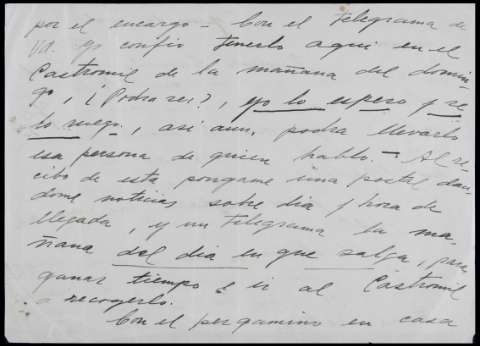 por el encargo - Con el telegrama de
Vd. yo confío tenerlo aquí en el
Castromil de la mañana del domin-
go, ¿¡Podrá ser?, yo lo espero y se
lo ruego, así aun, podrá llevarlo
esa persona de quien hablo. - Al re-
cibo de esta póngame una postal dán-
dome noticias sobre día y hora de
llegada, y un telegrama la ma-
ñana del día en que salga, para
ganar tiempo e ir al Castromil
a recogerlo.
Con el pergamino en casa